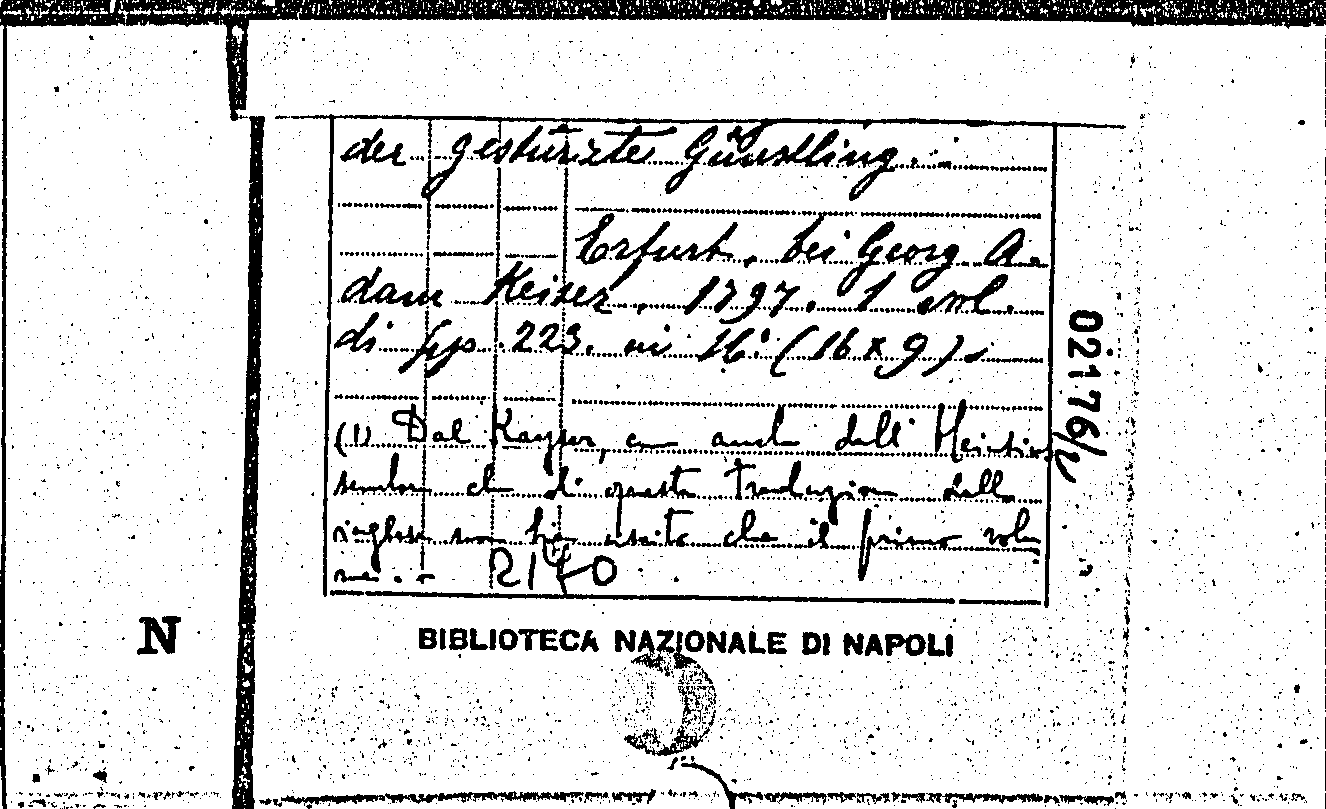 der gestürzte Günstling.-
Erfurt, bei Georg A-
dam Keiser, 1797. 1 vol.
di pp. 223. in 16° (16 x 9).
(1) Dal Kayser, e anche dall' Heinsius
sembra che di questa traduzione dall
inglese non sia uscito che il primo volu
me. - R140
BIBLIOTECA NAZIONALE DI NAPOLI
N
02176/